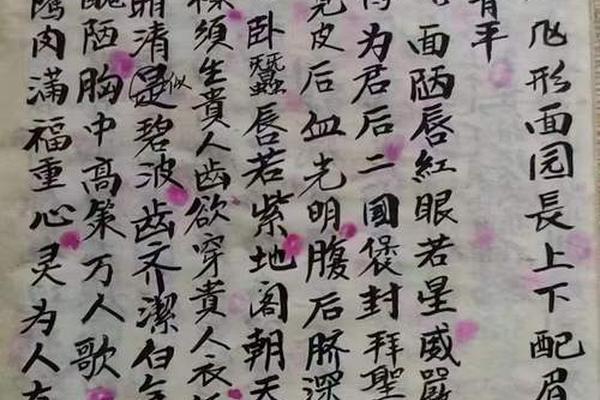 形面园長上下配眉
青平
面陋唇紅眼若星威嚴
为君后二国褒封拜聖
皮后血光明腹后脐深
卧蠶唇若紫地阁朝天
須生貴人齿欲穿貴人衣
清是似碧波齿齐潔白
陋胸中高策万人歌
肉满福重心灵为人